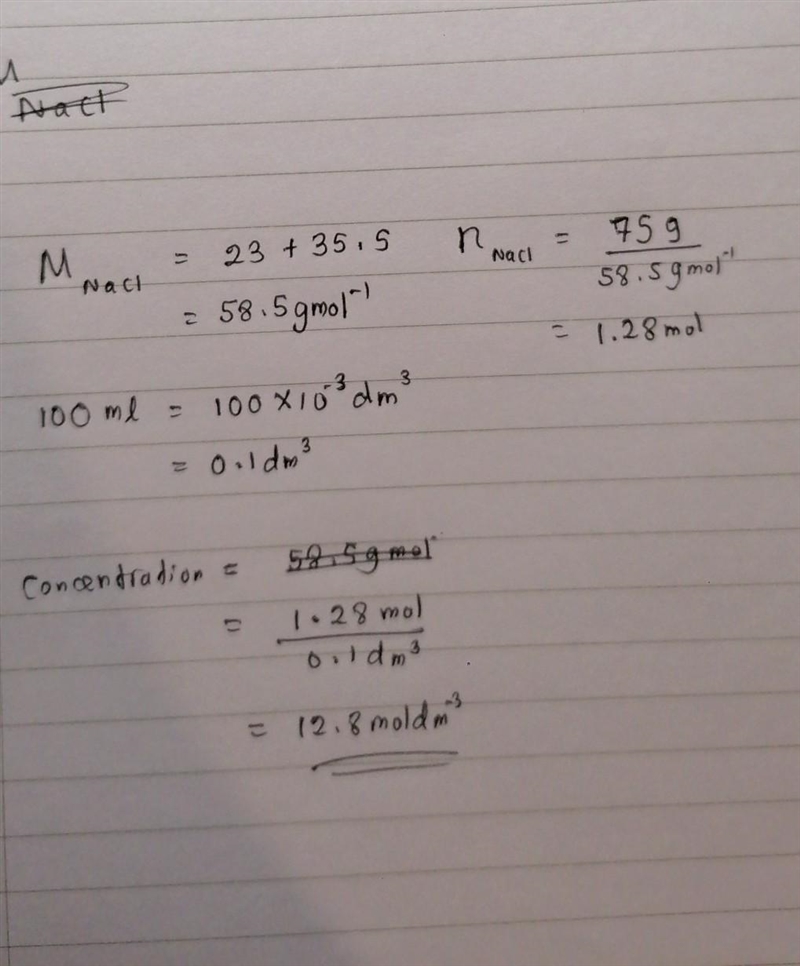 NaCl
M NaCl = 23 + 35.5
= 58.5 gmol⁻¹
n NaCl = 75g / 58.5 gmol⁻¹
= 1.28 mol
100 ml = 100 × 10⁻³ dm³
= 0.1 dm³
Concentradion = 58.5g mol
= 1.28 mol / 0.1 dm³
= 12.8 moldm⁻³